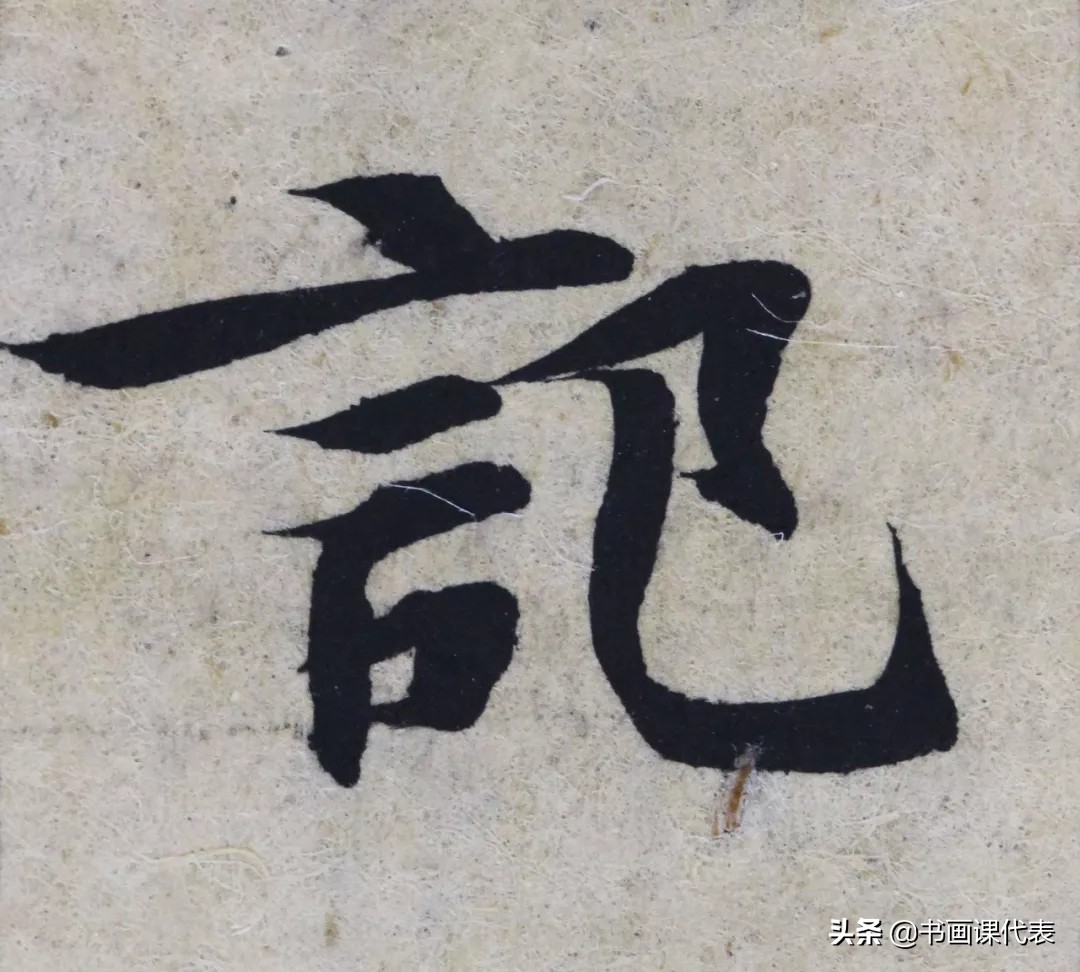 記
头条 @书画课代表